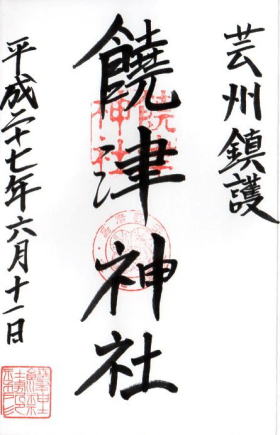 芸州鎮護
饒津神社
平成二十七年六月十一日
饒津
神社